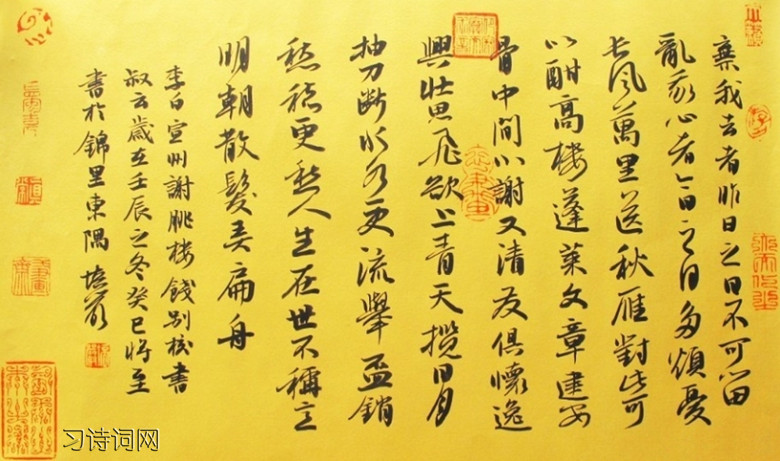 棄我去者昨日之日不可留
亂我心者今日之日多煩憂
長風萬里送秋雁對此可
以酣高樓蓬萊文章建安
骨中間小謝又清發俱懷逸
興壯思飛欲上青天攬日月
抽刀斷水水更流舉盃銷
愁愁更愁人生在世不稱意
明朝散髮弄扁舟
李白宣州謝朓樓餞別校書
叔云歲在壬辰之冬癸巳將至
書於錦里東隅
习诗词网